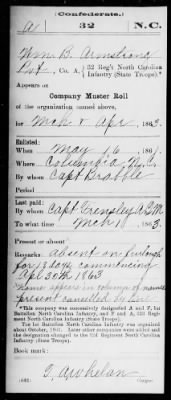 (Confederate.)
A | 32 | N.C.
Wm. B. Armstrong
Pvt., Co. A, 32 Reg't North Carolina
Infantry (State Troops).*
Appears on
Company Muster Roll
of the organization named above,
for Mch & Apr, 1863.
Enlisted:
When May 16, 1861.
Where Columbia N.C.
By whom Capt Brabble
Period
Last paid:
By whom Capt A.Q.M.
To what time Mch 1, 1863.
Present or absent
Remarks: Absent on furlough
for days commencing
Apl 30th 1863
Name appears in column of names
present cancelled by line
*This company was successively designated
Battalion North Carolina Infantry, and Co. A, 32d Regiment
North Carolina Infantry (State Troops).
The 1st Battalion North Carolina Infantry was organized
about October, 1861. Later companies were added and
the designation changed to the 32d Regiment North Carolina
Infantry (State Troops).
Book mark:
Whelan
(642)
Copyist.